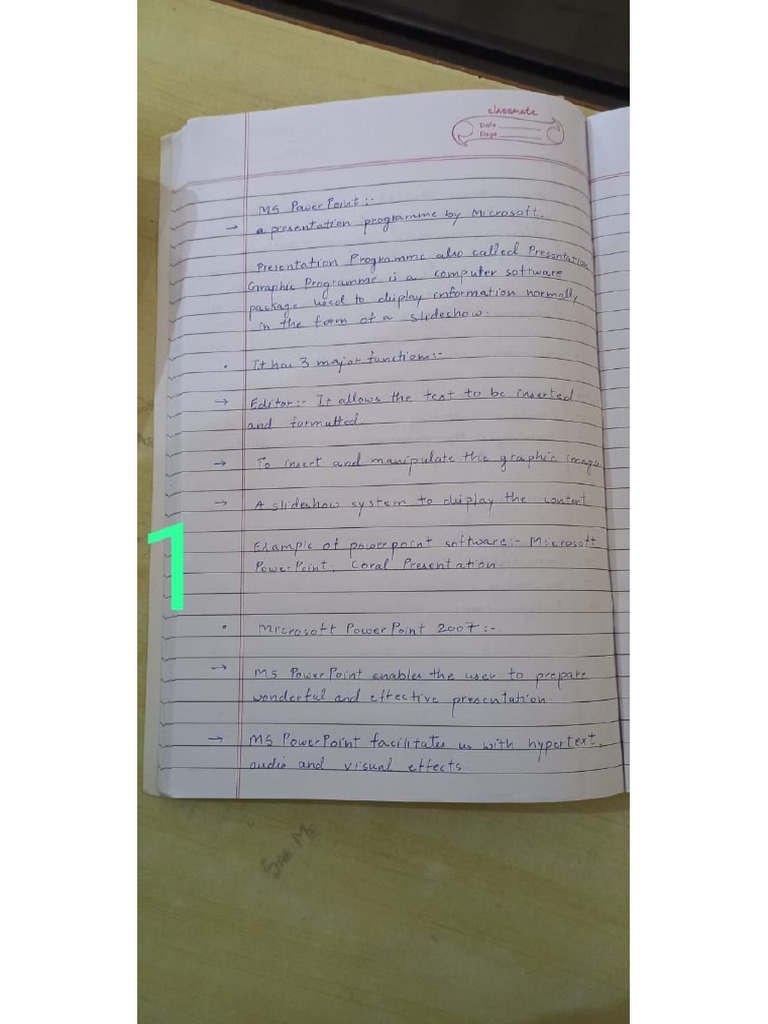 classmate
Date
Page
MS PowerPoint:-
→ a presentation programme by Microsoft.
Presentation Programme also called Presentation
Graphic Programme is a computer software
package used to display information normally
in the form of a slideshow.
• It has 3 major functions:-
→ Editor:- It allows the text to be inserted
and formatted.
→ To insert and manipulate the graphic images
→ A slideshow system to display the content
Example of powerpoint software:- Microsoft
PowerPoint, Coral Presentation.
1
• Microsoft PowerPoint 2007:-
→ MS PowerPoint enables the user to prepare
wonderful and effective presentation.
→ MS PowerPoint facilitates us with hypertext,
audio and visual effects.